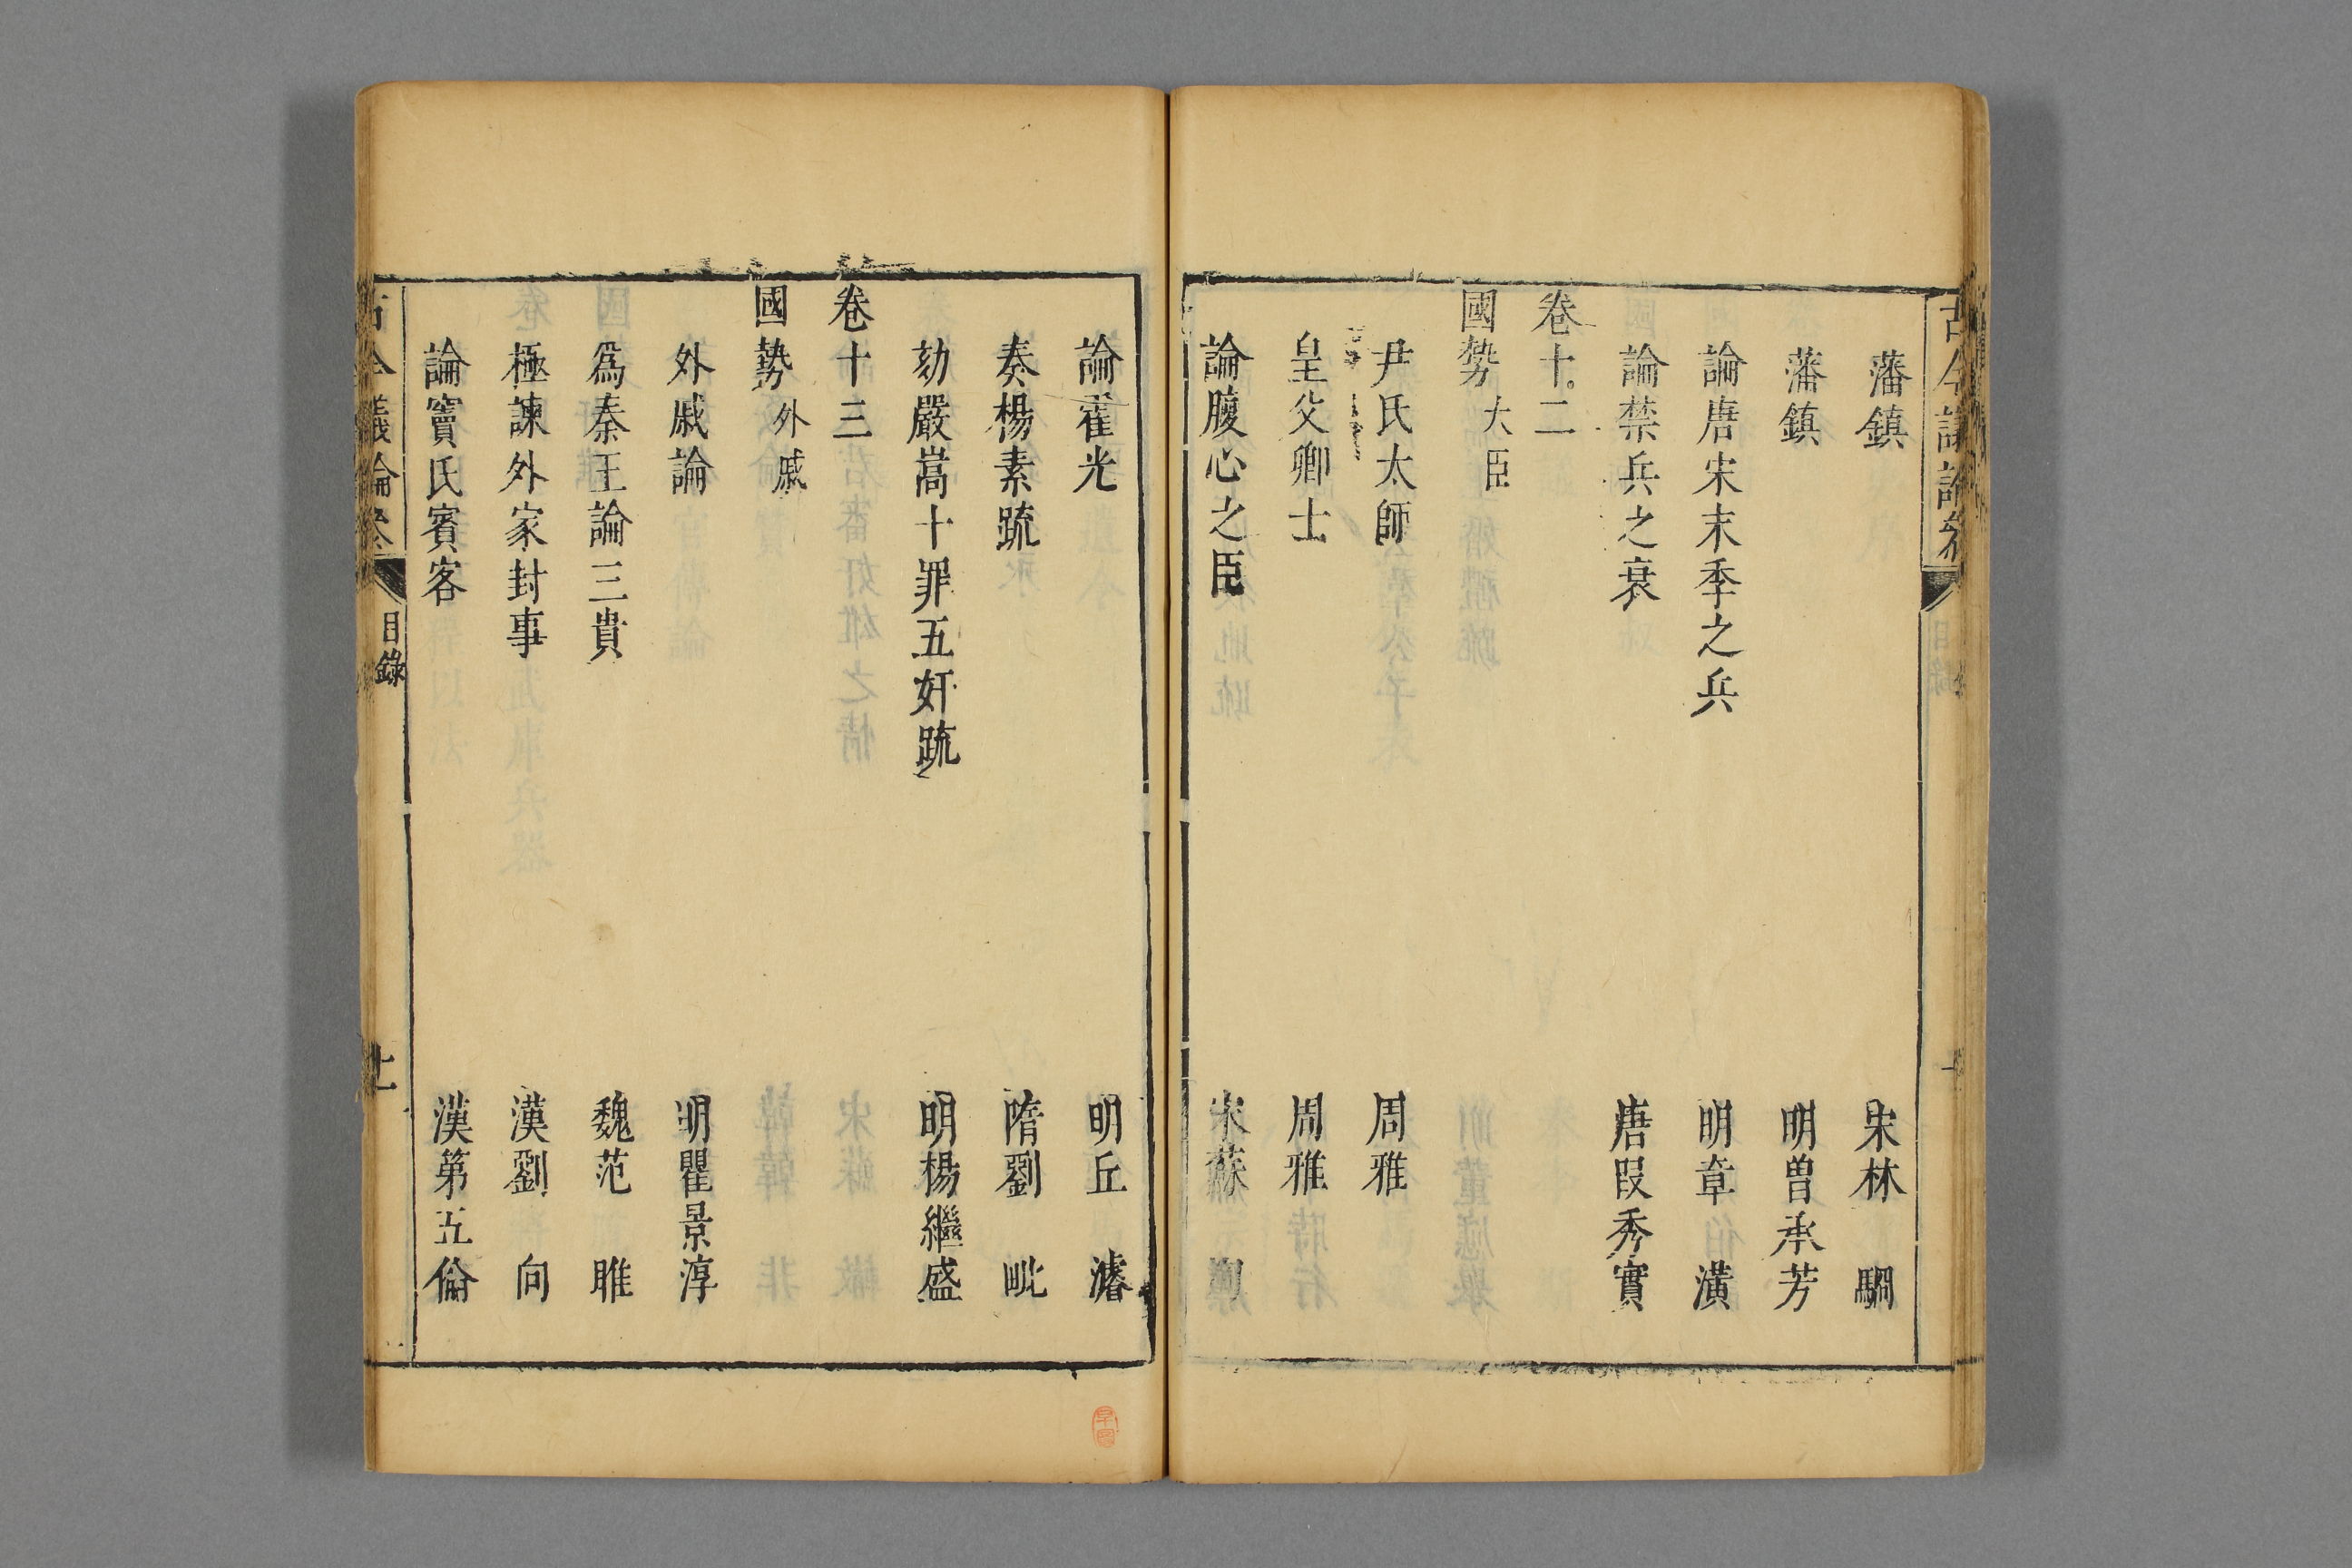 藩鎮 宋林 駉
藩鎮 明曾承芳
論唐宋末季之兵 明章 潢
論禁兵之衰 唐段秀實
卷十二
國勢 大臣
尹氏太師 周雅
皇父卿士 周雅
論腹心之臣 宋蘇 洵
論霍光 明丘 濬
奏楊素䟽 隋劉 毗
劾嚴嵩十罪五奸䟽 明楊繼盛
卷十三
國勢 外戚
外戚論 明瞿景淳
爲秦王論三貴 魏范 睢
極諫外家封事 漢劉 向
論竇氏賓客 漢第五倫
古今議論參 目錄